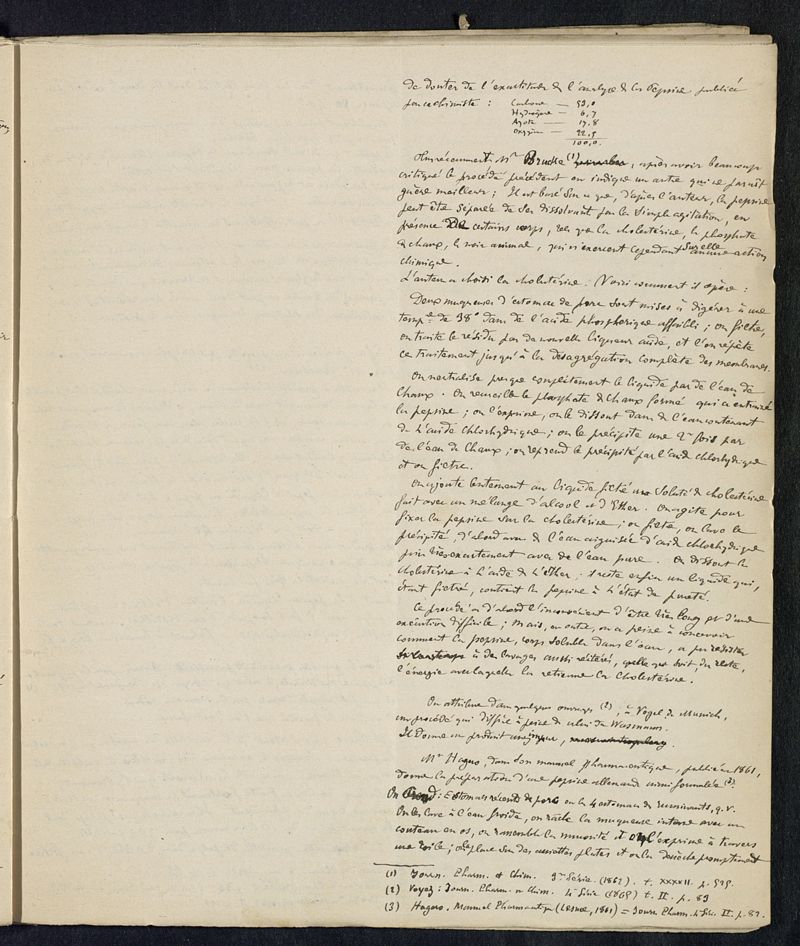 de douter de l'exactitude de l'analyse de la Pepsine publiée
par ce chimiste :
Carbone — 53,0
Hydrogène — 6,7
Azote — 17,8
Oxygène — 22,5
100,0.
Plus récemment Mr Brucke (1), après avoir beaucoup
critiqué le procédé précédent en indique un autre qui ne paraît
guère meilleur ; Il est basé sur ce que, d'après l'auteur, la pepsine
peut être séparée de son dissolvant par la simple agitation, en
présence de certains corps, tels que la cholestérine, le phosphate
de chaux, le noir animal, qui n'exercent cependant sur elle aucune action
chimique.
L'auteur a choisi la cholestérine. Voici comment il opère :
Deux muqueuses d'estomac de porc sont mises à digérer à une
tempre de 38° dans de l'acide phosphorique affaibli ; on filtre,
on traite le résidu par de nouvelle liqueur acide, et l'on répète
ce traitement jusqu'à la désagrégation complète des membranes.
On neutralise presque complètement le liquide par de l'eau de
chaux. On recueille le phosphate de chaux formé qui a entraîné
la pepsine ; on l'exprime, on le dissout dans de l'eau contenant
de l'acide chlorhydrique ; on le précipite une 2e fois par
de l'eau de chaux ; on reprend le précipité par l'acide chlorhydrique
et on filtre.
On ajoute lentement au liquide filtré un soluté de cholestérine
fait avec un mélange d'alcool et d'Ether. On agite pour
fixer la pepsine sur la cholestérine ; on filtre, on lave le
précipité, d'abord avec de l'eau aiguisée d'acide chlorhydrique
puis très exactement avec de l'eau pure. On dissout la
cholestérine à l'aide de l'Ether ; il reste enfin un liquide qui,
étant filtré, contient la pepsine à l'état de pureté.
Ce procédé a d'abord l'inconvénient d'être très long et d'une
exécution difficile ; mais, en outre, on a peine à concevoir
comment la pepsine, corps soluble dans l'eau, a pu résister
à des lavages aussi réitérés, quelle que soit, du reste,
l'énergie avec laquelle la retienne la cholestérine.
On attribue dans quelques ouvrages (2), à Vogel de Munich,
un procédé qui diffère à peine de celui de Wasmann.
Il donne un produit impur,
Mr Hager, dans son manuel Pharmaceutique, publié en 1861,
donne la préparation d'une pepsine allemande ainsi formulée (3).
On Prend : Estomacs récents de porc ou le 4e estomac de ruminants, q. v.
On les lave à l'eau froide, on racle la muqueuse interne avec un
couteau en os, on rassemble la mucosité et on l'exprime à travers
une toile ; on place sur des assiettes plates et on la dessèche promptement
(1) Journ. Pharm. et Chim. 3e Série. (1862). t. XXXXII. p.
(2) Voyez : Journ. Pharm. et Chim. 4e Série (1865) t. II. p. 83
(3) Hagers. Manuel Pharmaceutique (Lesnoe, 1861) = Journ. Pharm. 4e Sér. II. p. 87.